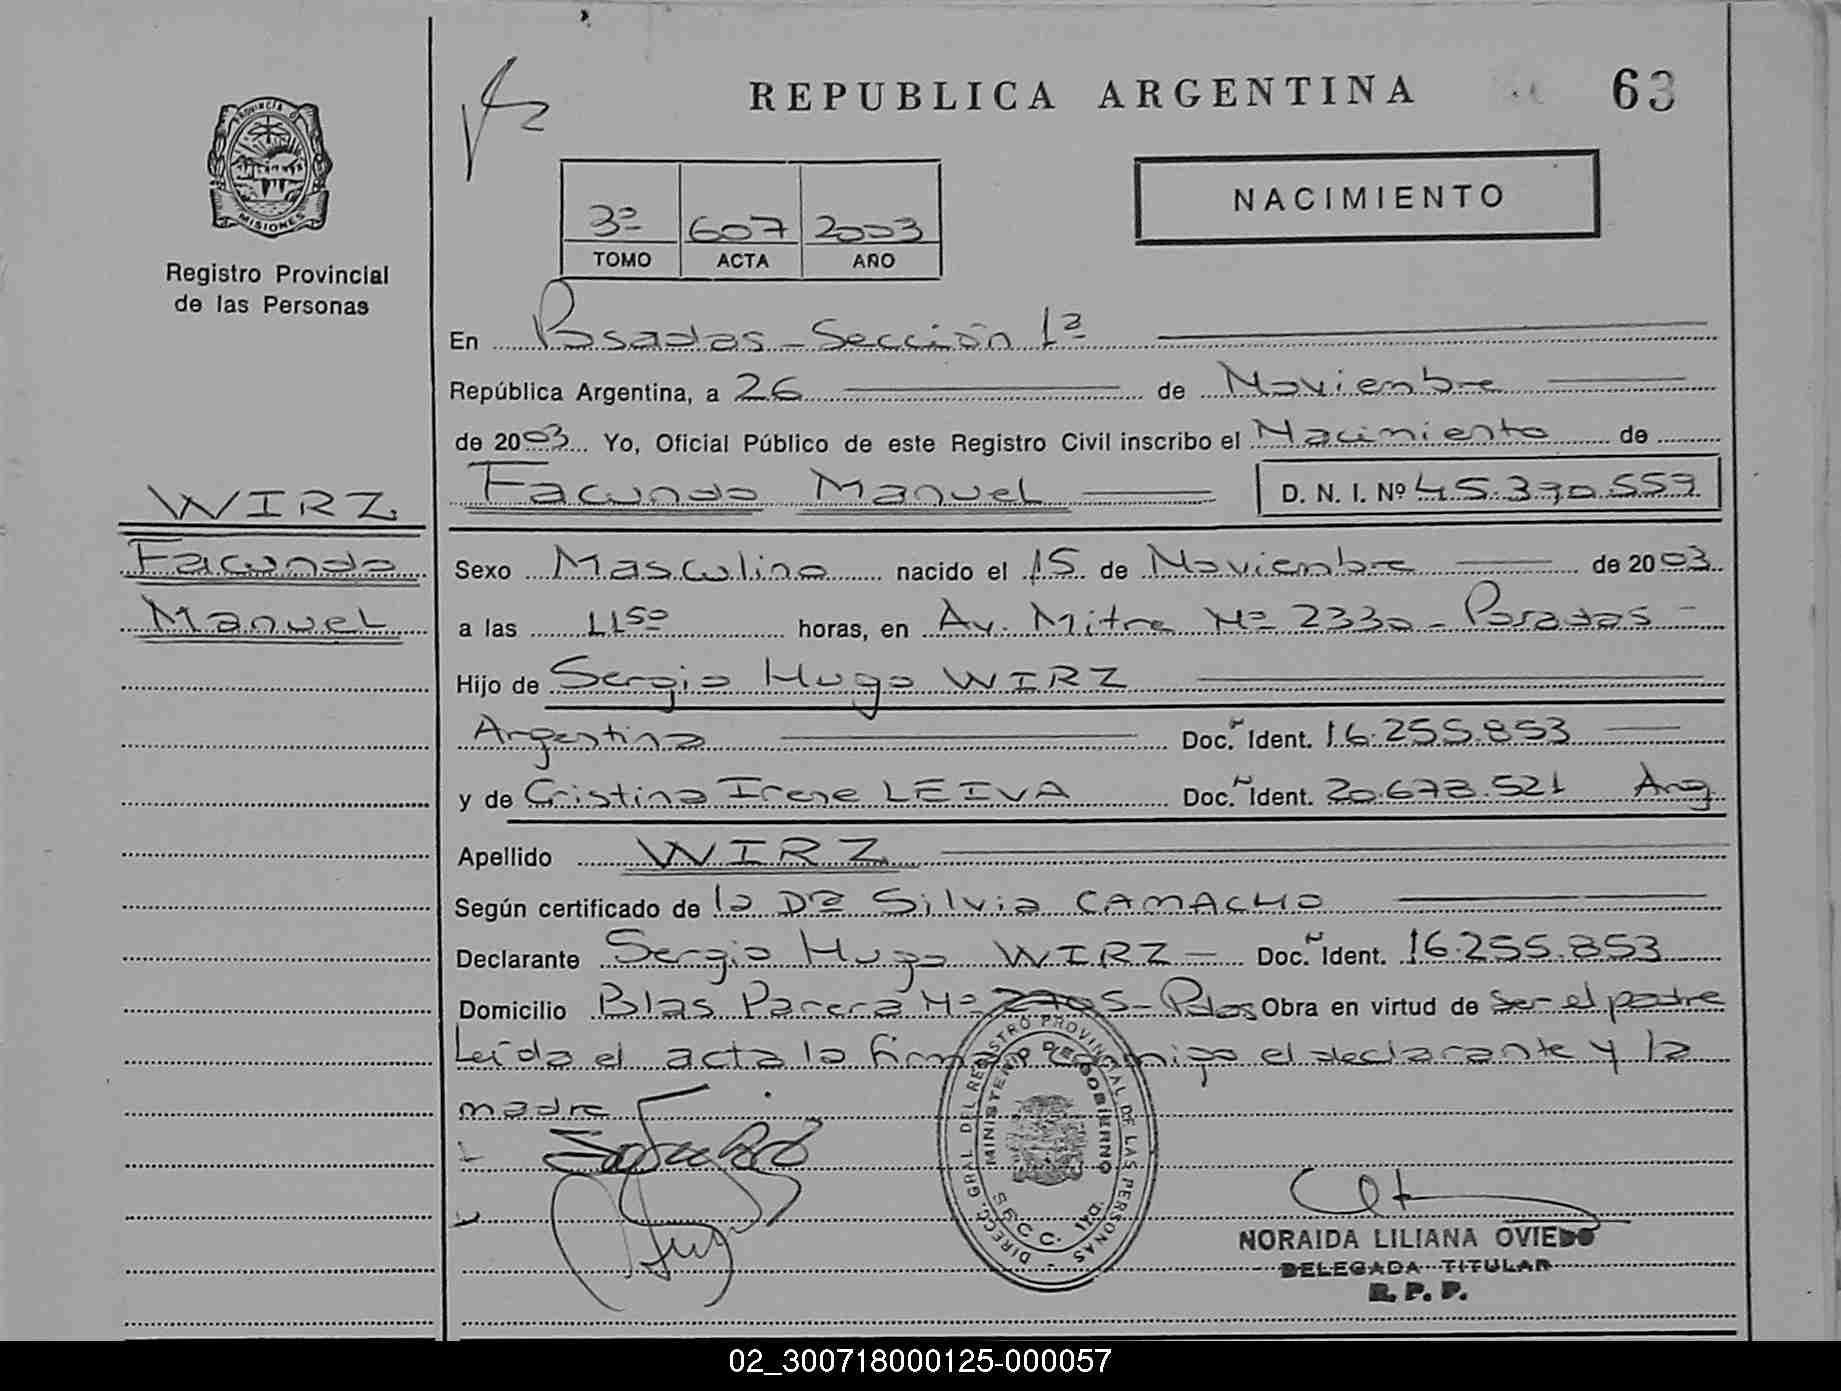 REPUBLICA ARGENTINA 63
PROVINCIA D
MISIONES
Registro Provincial
de las Personas
NACIMIENTO
3º 607 2003
TOMO ACTA AÑO
En Posadas - Sección 1ª
República Argentina, a 26 de Noviembre
de 2003 Yo, Oficial Público de este Registro Civil inscribo el Nacimiento de
Facundo Manuel D. N. I. Nº 45.390.559
WIRZ
Facundo
Manuel
Sexo Masculino nacido el 15 de Noviembre de 2003
a las 11 50 horas, en Av. Mitre Nº 2330 - Posadas -
Hijo de Sergio Hugo WIRZ
Argentina Doc. Ident. 16.255.853
y de Cristina Irene LEIVA Doc. Ident. 20.673.521 Arg
Apellido WIRZ
Según certificado de la Drª Silvia CAMACHO
Declarante Sergio Hugo WIRZ - Doc. Ident. 16.255.853
Domicilio Blas Parera Nº 2705 - Pdas Obra en virtud de ser el padre
Leída el acta la firman conmigo el declarante y la
madre
DIRECC. GRAL. DEL REGISTRO PROVINCIAL DE LAS PERSONAS
MINISTERIO DE GOBIERNO
NORAIDA LILIANA OVIEDO
DELEGADA TITULAR
R. P. P.
02_300718000125-000057